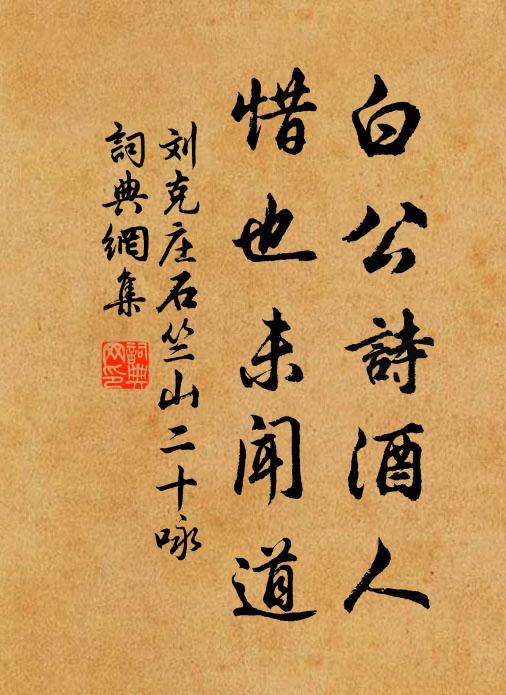 白公詩酒人
惜也未聞道
刘克庄石竺山二十咏
詞典網集
詞典網印